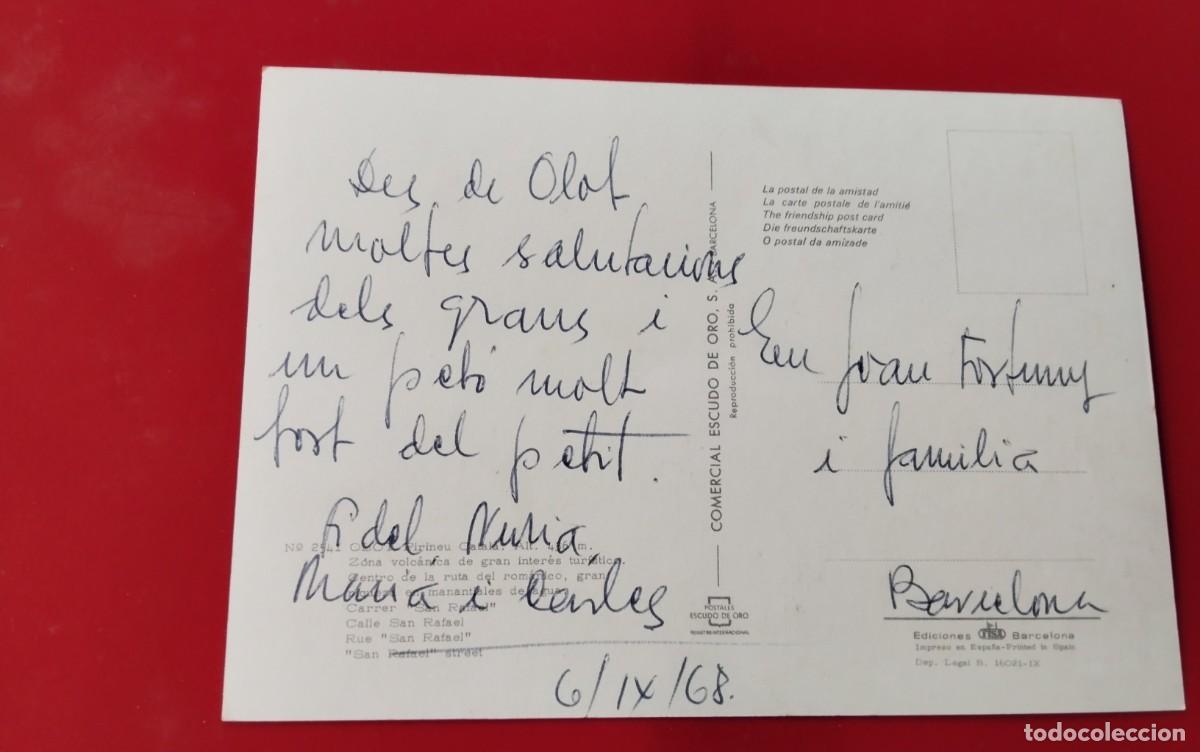 Des de Olot
moltes salutacions
dels grans i
un petó molt
fort del petit.
Fidel, Nuria,
Maria i Carles
6/IX/68.
Nº 254 OLOT. Pirineu Català. Alt.
Zona volcánica de gran interés turístico.
Centro de la ruta del románico, gran
en manantiales de agua.
Carrer "San Rafael"
Calle San Rafael
Rue "San Rafael"
"San Rafael" street
COMERCIAL ESCUDO DE ORO, S. A. BARCELONA
Reproducción prohibida
POSTALES
ESCUDO DE ORO
La postal de la amistad
La carte postale de l'amitié
The friendship post card
Die freundschaftskarte
O postal da amizade
En Joan Fortuny
i familia
Barcelona
Ediciones FISA Barcelona
Impreso en España-Printed in Spain
Dep. Legal B. 16021-IX
todocoleccion